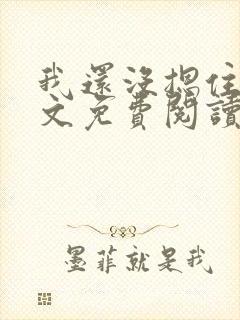 我還没揌住
文免費閱讀
墨菲就是我